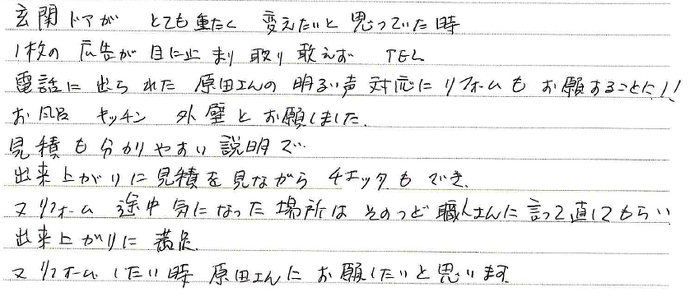 玄関ドアが とても重たく 変えたいと思っていた時
1枚の広告が目に止まり取り敢えず TEL
電話に出られた原田さんの明るい声対応にリフォームもお願することに!!
お風呂 キッチン 外壁とお願しました.
見積も分かりやすい説明で…
出来上がりに見積を見ながらチェックもでき.
又リフォーム途中気になった場所はそのつど職人さんに言って直してもらい
出来上がりに満足.
又リフォームしたい時 原田さんにお願したいと思います